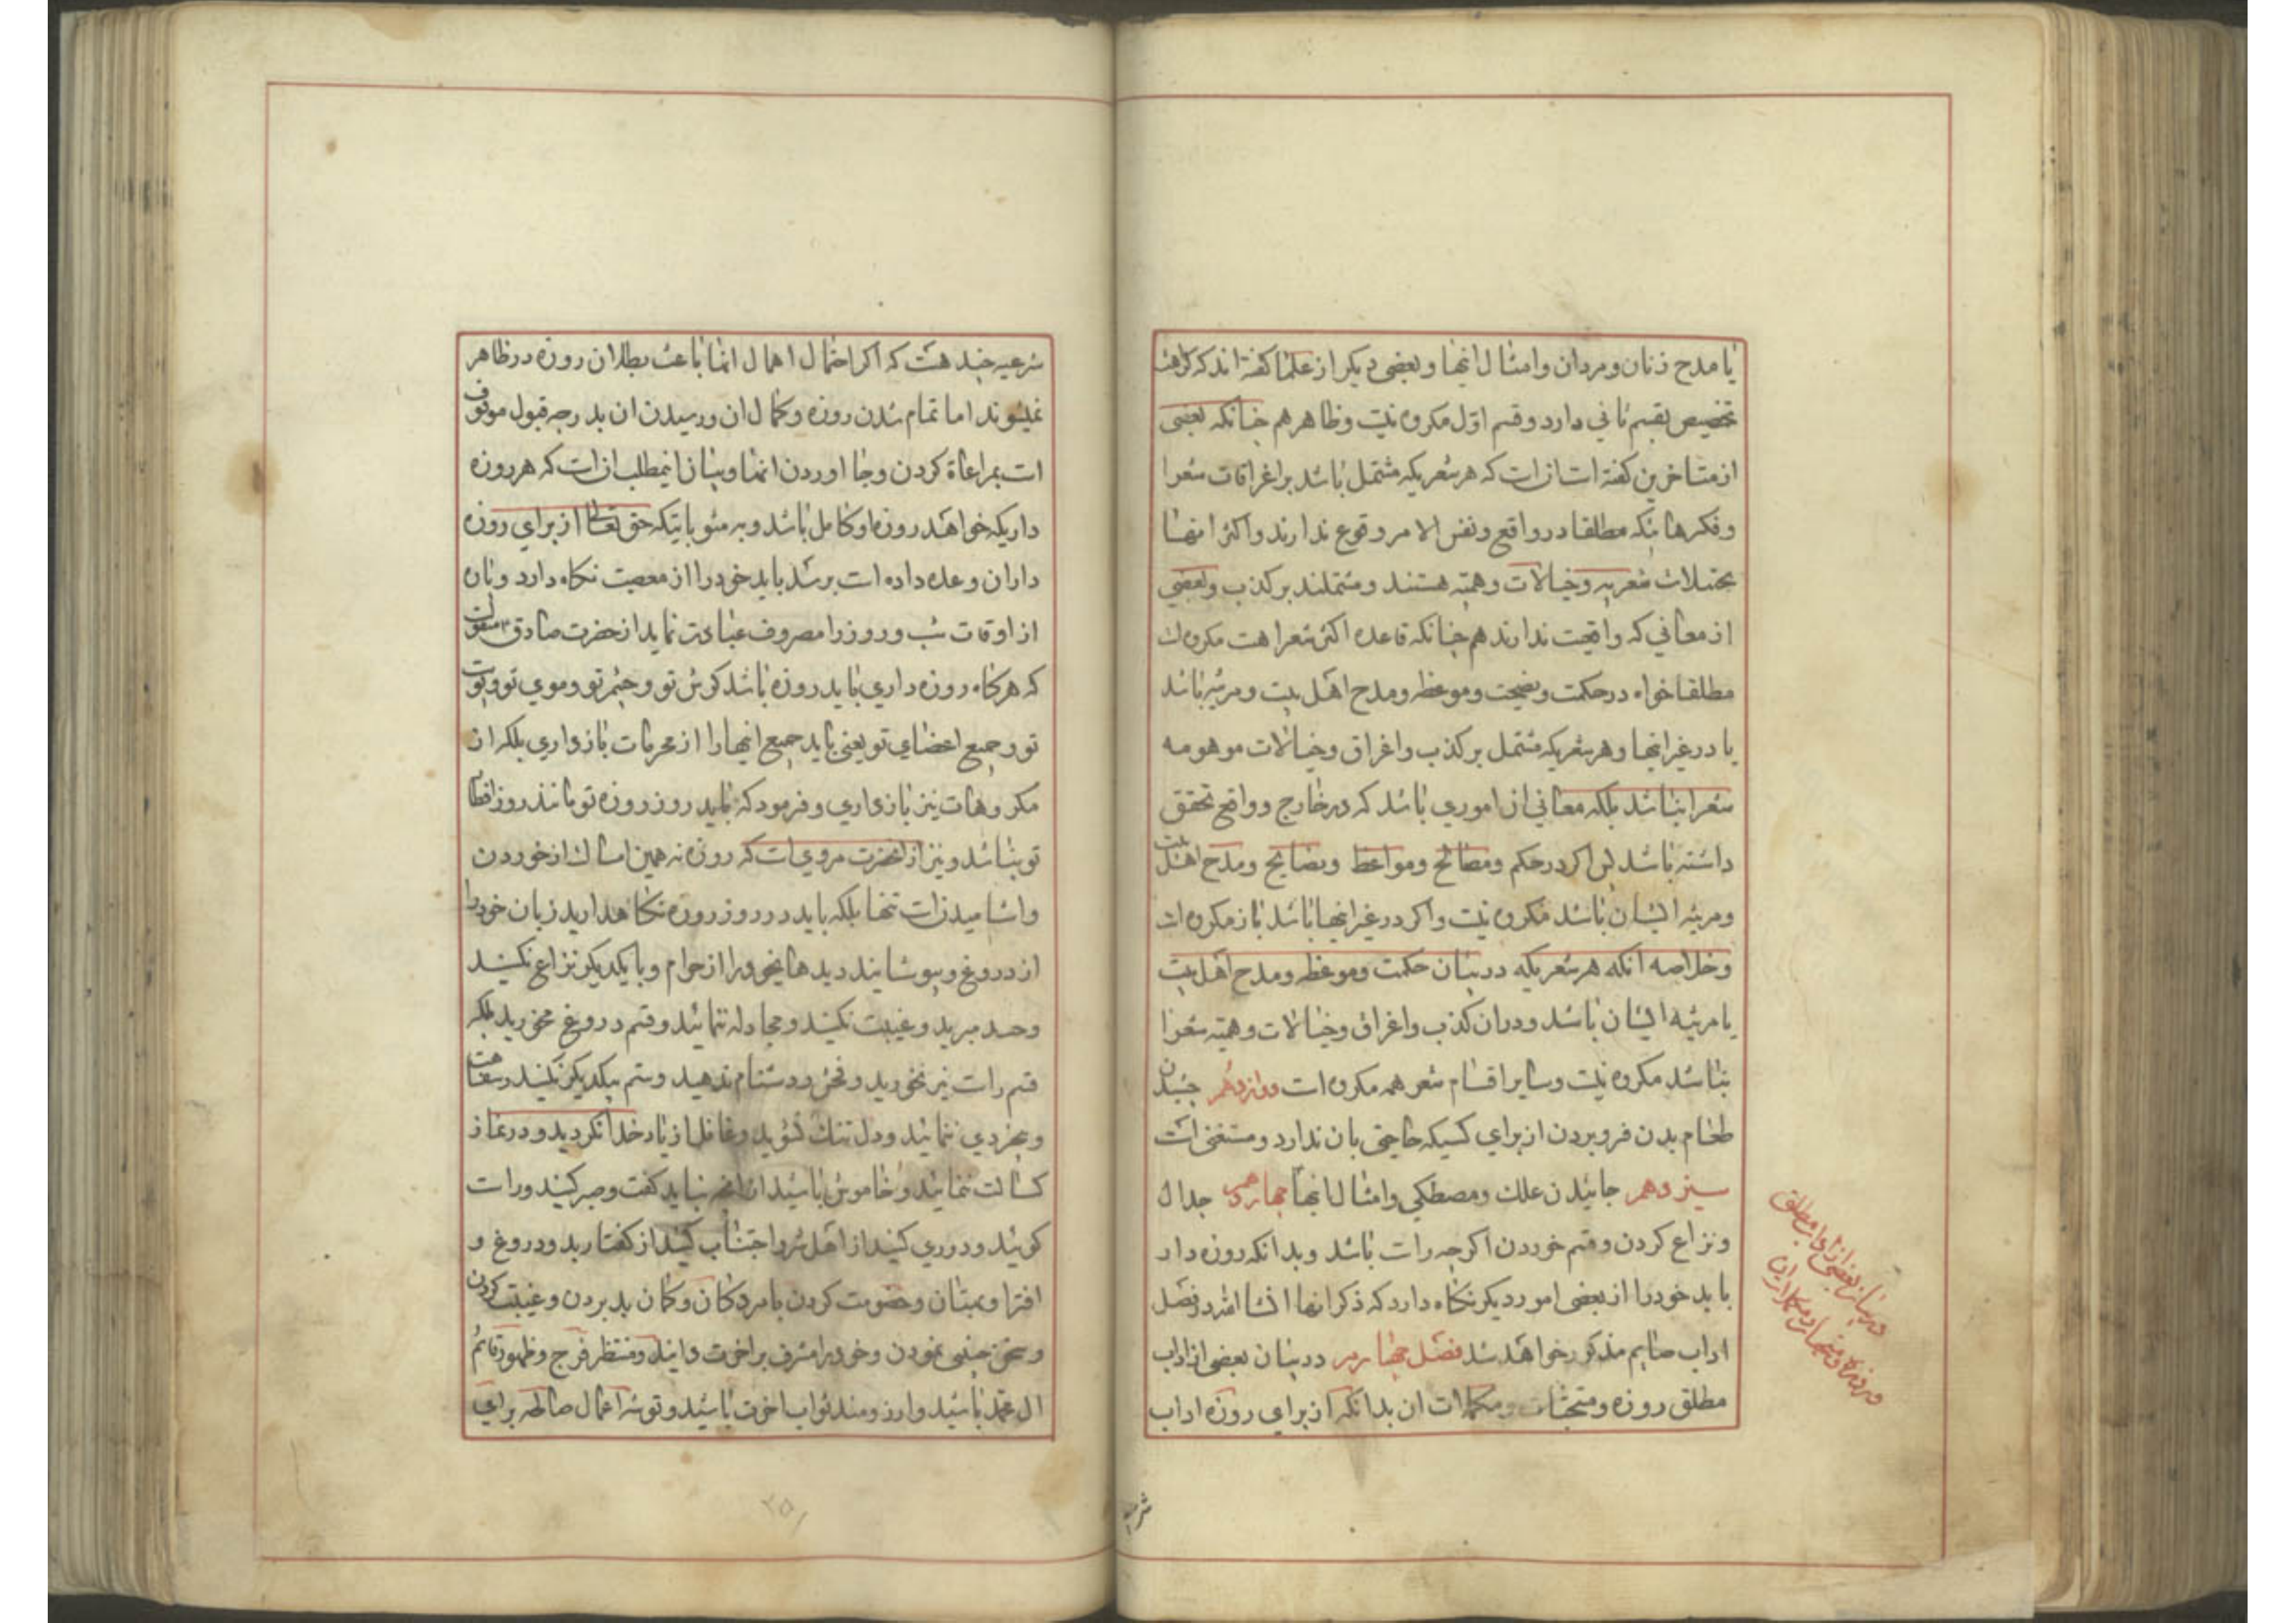 یا مدح زنان و مردان و امثال اینها و بعضی دیکر از علما کفته‌اند که کراهت
تخصیص بقسم ثانی دارد و قسم اوّل مکروه نیست و ظاهر هم چنانکه بعضی
از متاخرین کفته است ان است که هر شعریکه مشتمل باشد بر اغراقات شعرا
و فکرهائیکه مطلقا در واقع و نفس الامر وقوع ندارند و اکثر اینها
بتخیلات شعریه و خیالات وهمیّه هستند و مشتملند بر کذب و بعضی
از معانی که واقعیت ندارند هم چنانکه قاعده اکثر شعرا هست مکروه است
مطلقا خواه در حکمت و نصیحت و موعظه و مدح اهل بیت و مرثیه باشد
یا در غیر اینها و هر شعریکه مشتمل بر کذب و اغراق و خیالات موهومه
شعرا نباشد بلکه معانی از اموری باشد که در خارج و واقع تحقق
داشته باشد پس اکر در حکم و مصالح و مواعظ و نصایح و مدح اهل بیت
و مرثیه ایشان باشد مکروه نیست و اکر در غیر اینها باشد باز مکروه است
و خلاصه آنکه هر شعریکه در بیان حکمت و موعظه و مدح اهل بیت
یا مرثیه ایشان باشد و در ان کذب و اغراق و خیالات وهمیّه شعرا
نباشد مکروه نیست و سایر اقسام شعر همه مکروه است دوازدهم چشیدن
طعام بدن فرو بردن از برای کسیکه حاجتی بان ندارد و مستغنی است
سیزدهم جائیدن علک و مصطکی و امثال اینها چهاردهم جدال
و نزاع کردن و قسم خوردن اکرچه راست باشد و بدانکه روزه دار
باید خود را از بعضی امور دیکر نکاه دارد که ذکر انها انشا الله در فصل
اداب صایم مذکور خواهد شد فصل چهارم در بیان بعضی از اداب
مطلق روزه و مستحبّات و مکمّلات ان بدانکه از برای روزه اداب
در بیان بعضی از اداب مطلق
روزه و مستحبات و مکملات ان
شرعیه
شرعیه چند هست که اکر احتمال اهمال انها باعث بطلان روزه در ظاهر
نمیشوند اما تمام شدن روزه و کمال ان و رسیدن ان بدرجه قبول موقوف
است بمراعاة کردن و بجا اوردن انها و بیان اینمطلب ان است که هر روزه
داریکه خواهد روزه او کامل باشد و به مثوباتیکه حق تعالی از برای روزه
داران وعده داده است برسد باید خود را از معصیت نکاه دارد و پاره
از اوقات شب و روز را مصروف عبادت نماید از حضرت صادق ع منقول است
که هر کاه روزه داری باید روزه باشد کوش تو و چشم تو و موی تو و پوست
تو و جمیع اعضای تو یعنی باید جمیع انها را از محرمات بازداری بلکه از
مکروهات نیز بازداری و فرمود که باید روز روزه تو مانند روز افطار
تو نباشد و نیز از انحضرت مروی است که روزه نه همین امساک از خوردن
و اشامیدن است تنها بلکه باید در روز روزه نکاهدارید زبان خود را
از دروغ و بپوشانید دیدهای خود را از حرام و با یکدیکر نزاع نکنید
و حسد مبرید و غیبت نکنید و مجادله ننمائید و قسم دروغ مخورید بلکه
قسم راست نیز نخورید و فحش و دشنام ندهید و ستم بیکدیکر نکنید و سفاهت
و بیخردی ننمائید و دل تنک نشوید و غافل از یاد خدا نکردید و در نماز
کسالت ننمائید و خاموش باشید از انچه نباید کفت و صبر کنید و راست
کوئید و دوری کنید از اهل شر و اجتناب کنید از کفتار بد و دروغ و
افترا و بهتان و خصومت کردن با مردکان و کمان بد بردن و غیبت کردن
و سخن چینی نمودن و خود را مشرف بر اخرت دانید و منتظر فرج و ظهور قائم
ال محمد باشید و ارزومند ثواب اخرت باشید و توشه اعمال صالحه برای
۲۵۱